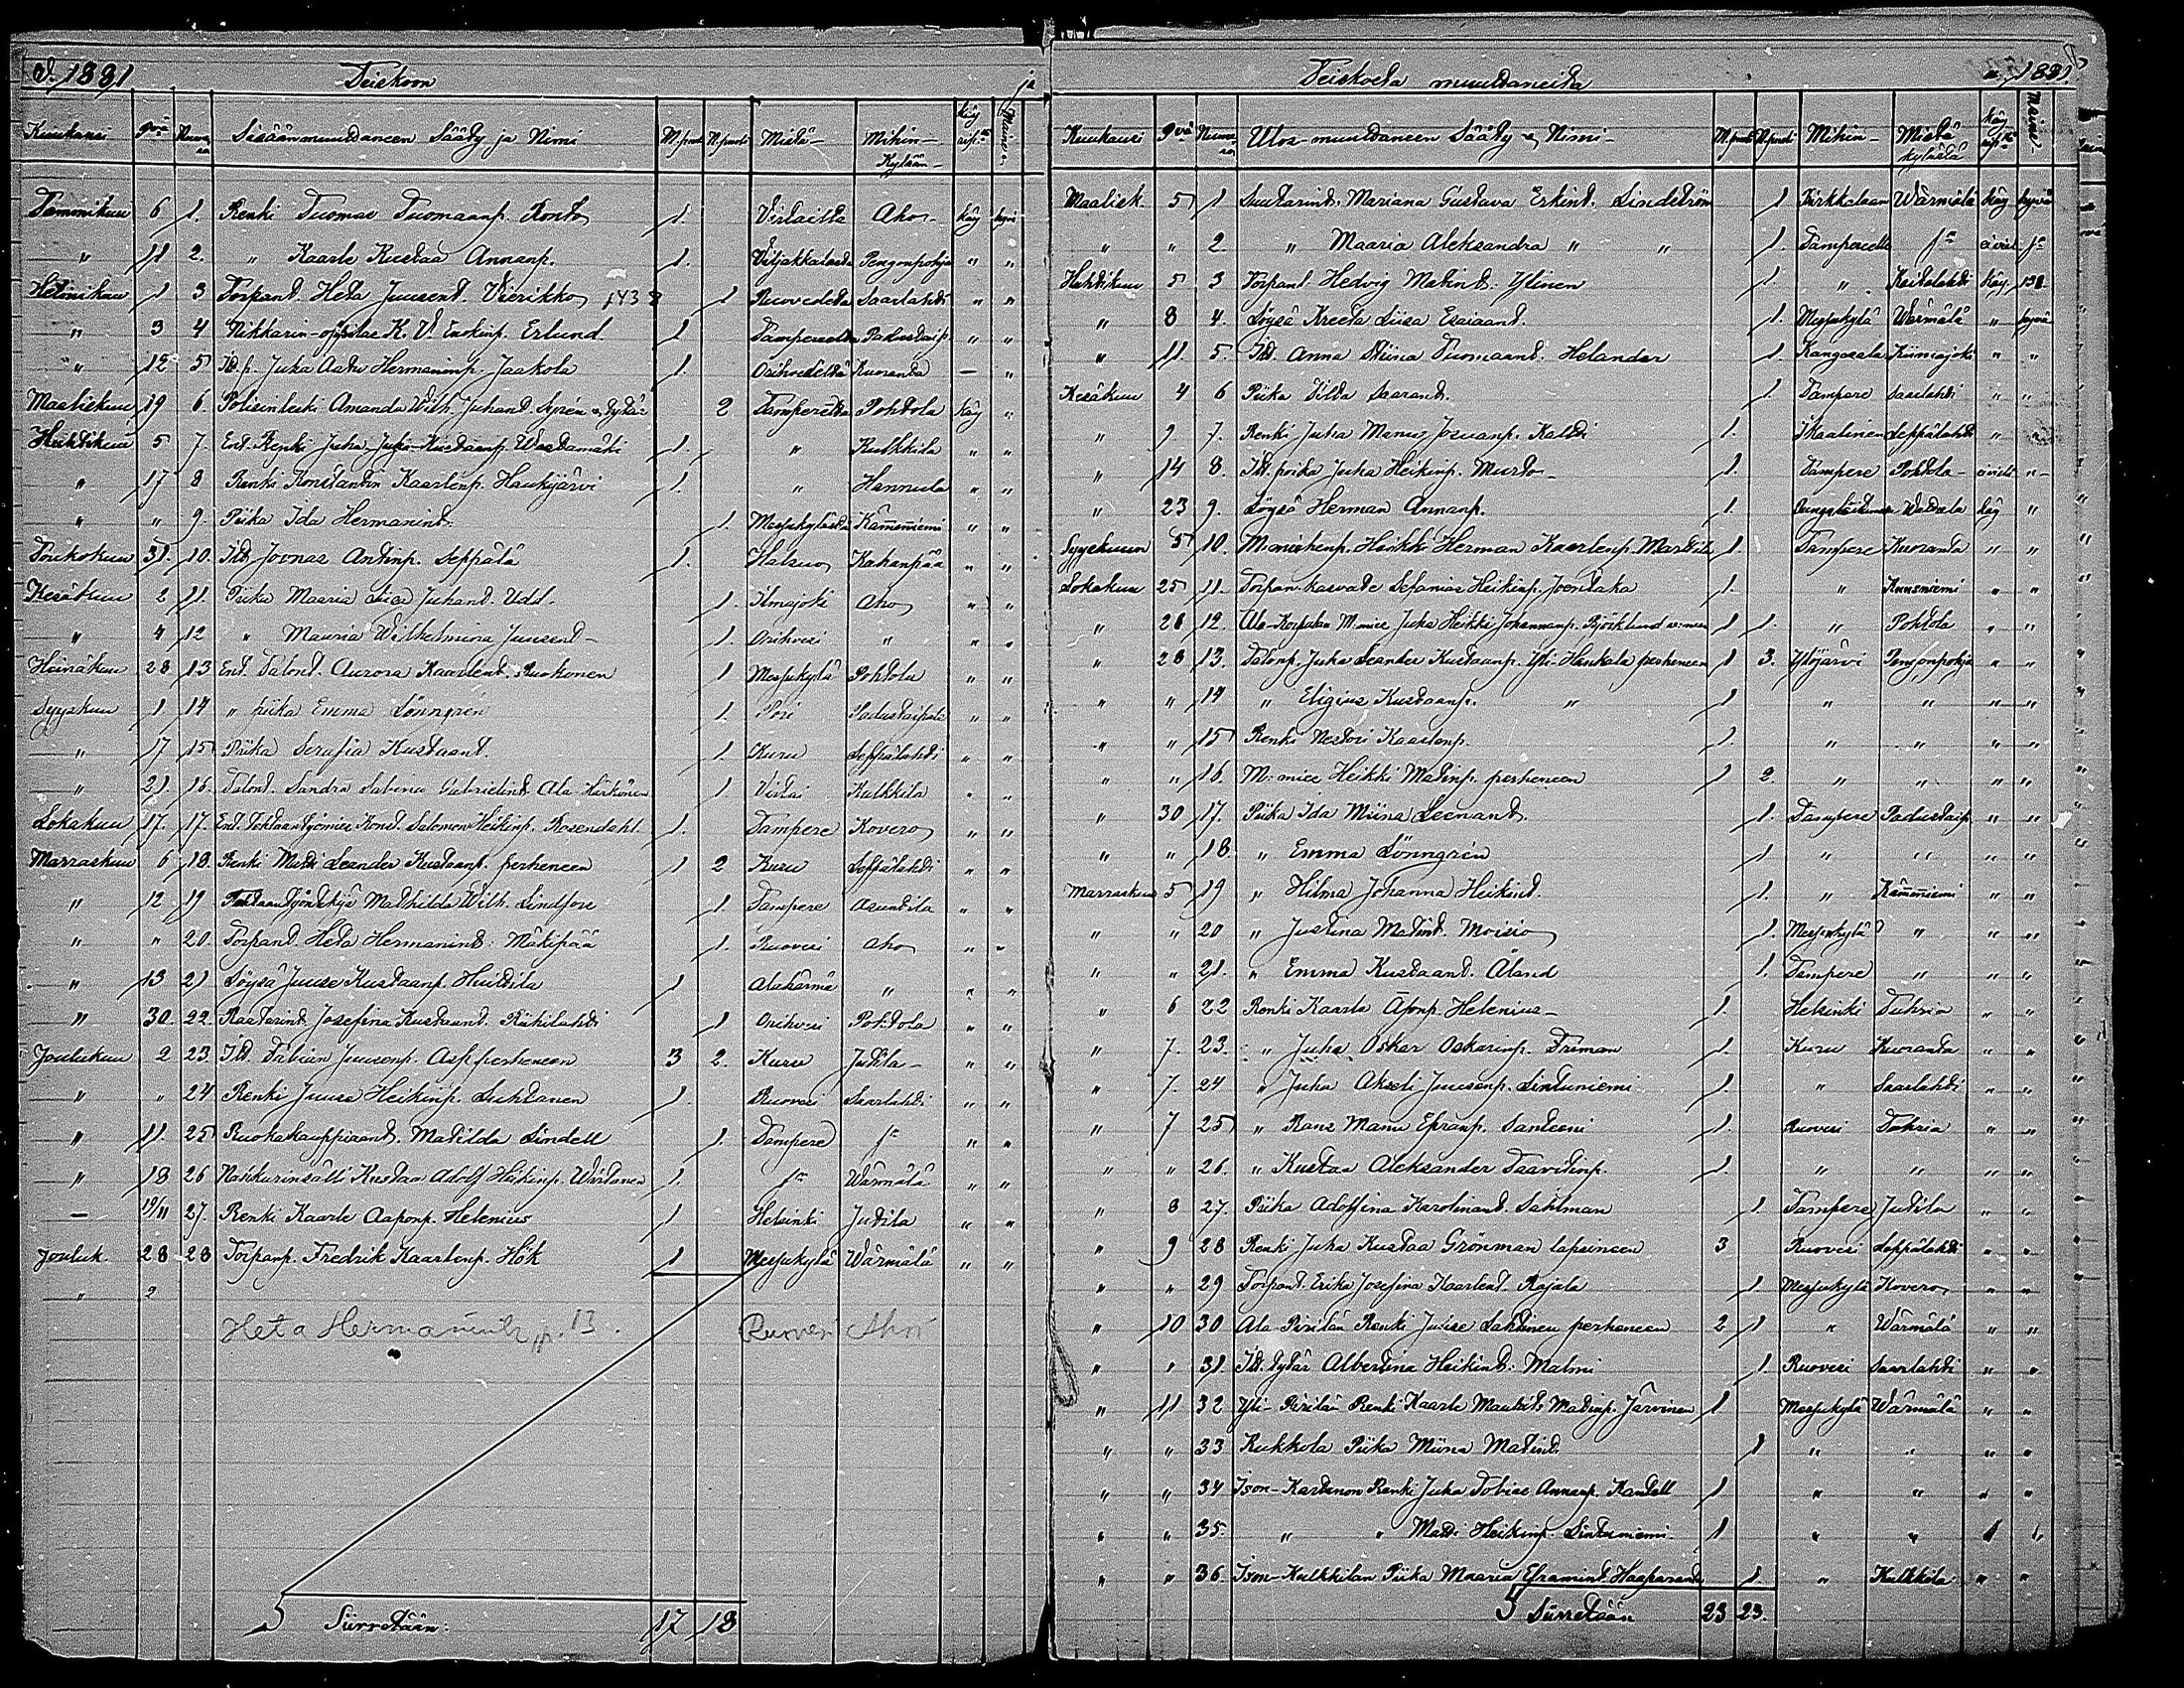 v. 1881 Teiskoon ja
Kuukausi Pvä Numero Sisäänmuuttaneen Sääty ja Nimi M.puoli N.puoli Mistä Mihin Kylään Käy rip. Maine
Tammikuu 6 1. Renki Tuomas Tuomaanp. Ronto 1. Virtailta Aho käy hyvä
" 11 2. " Kaarle Kustaa Annanp. 1. Viljakkalasta Pengonpohja " "
Helmikuu 1 3 Torpant. Heta Juusent. Vierikko 143 1 Ruovedeltä Saarlahti " "
" 3 4 Nikkarin-oppilas K. V. Enokinp. Erlund 1 Tampereelta Padustaip. " "
" 12 5 Its. p. Juha Aatu Hermaninp. Jaakola 1. Orihvedeltä Kuoranta — "
Maaliskuu 19 6. Polisinleski Amanda Wilh. Juhant. Syrén & tytär 2 Tampereelta Pohtola käy "
Huhtikuu 5 7. Ent. Renki Juha Juho-Kustaanp. Wastamäki 1. " Kulkkila " "
" 17 8 Renki Konstantin Kaarlenp. Haukijärvi 1. " Hannula " "
" " 9. Piika Ida Hermanint. 1. Messukylästä Kämmenniemi " "
Toukokuu 31. 10. Its. Joonas Antinp. Seppälä 1. Halsuo Kahanpää " "
Kesäkuu 2 11. Piika Maaria Liisa Juhant. Udd. 1. Ilmajoki Aho " "
" 4 12 " Mauria Wilhelmiina Juusent. 1. Orihvesi " " "
Heinäkuu 28 13 Ent. Talont. Aurora Kaarlent. Ruokonen 1 Messukylä Pohtola " "
Syyskuu 1 14 " piika Emma Lönngrén 1. Pori Padustaipale " "
" 17 15 Piika Serafia Kustaant. 1. Kuru Leppälahti " "
" 21. 16. Talont. Sandra Sabina Gabrielint. Ala-Härkönen 1. Virtai Kulkkila " "
Lokakuu 17. 17. Ent. Tehtaantyömies Konst. Salomon Heikinp. Rosendahl. 1. Tampere Kovero " "
Marraskuu 6 18. Renki Matti Leander Kustaanp. perheneen 1 2 Kuru Leppälahti " "
" 12 19 Tehtaantyöntekijä Mathilda Wilh. Lindfors 1. Tampere Asuntila " "
" " 20. Torpant. Heta Hermanint. Mäkipää 1. Ruovesi Aho " "
" 13 21 Löysä Juuse Kustaanp. Huitila 1 Alahärmä " " "
" 30. 22. Raatarint. Josefina Kustaant. Riihilahti 1 Orihvesi Pohtola " "
Joulukuu 2 23. Its. Fabian Juusenp. Asp perheneen 3 2. Kuru Jutila " "
" " 24 Renki Juuse Heikinp. Luhtanen 1. Ruovesi Saarlahti " "
" 11. 25 Ruokakauppiaant. Matilda Lindell 1. Tampere " "
" 18 26 Nahkurinsälli Kustaa Adolf Heikinp. Wirtanen 1. Wärmälä " "
— 19/11 27. Renki Kaarle Aaponp. Helenius 1 Helsinki Jutila " "
Jouluk. 28 28 Torpanp. Fredrik Kaarlenp. Hök 1 Messukylä Wärmälä " "
" 2
Heta Hermanint. p. 13. Ruovesi Aho
Siirretään: 17 18
Teiskosta muuttaneita v. 1881
Kuukausi Pvä Numero Ulos-muuttaneen Sääty & Nimi M.puoli N.puoli Mihin Mistä kylästä Käy rip. Maine
Maalisk. 5 1 Suutarint. Mariana Gustava Erkint. Lindström 1 Pirkkalaan Wärmälä käy hyvä
" " 2. " Maaria Aleksandra " " 1. Tampereelle
Huhtikuu 5 3 Torpant. Hedvig Matint. Ylinen 1. " käy
" 8 4. Löysä Kreeta Liisa Esaiaant. 1. Messukylä Wärmälä " hyvä
" 11 5. Its. Anna Stiina Tuomaant. Helander 1. Kangasala Kiimajoki " "
Kesäkuu 4 6 Piika Tilda Saarant. 1. Tampere Saarlahti " "
" 9 7. Renki Juha Manu Josuanp. Kalli 1. Ikaalinen Leppälahti "
" 14 8. Itt. poika Juha Heikinp. Murto 1. Tampere Pohtola ei vielä "
" 23 9. Löysä Herman Annanp. 1. käy "
Syyskuun 5 10. M:miehenp. Heikki Herman Kaarlenp. 1. Tampere Kuoranta " "
Lokakuu 25 11. Torpan-kasvate Sefanias Heikinp. Joentaka 1. " Kuusniemi " "
" 26 12. Ala-Korpulan M:mies Juha Heikki Johannanp. Björklund 1 1. " Pohtola " "
" 28 13. Talonp. Juha Leander Kustaanp. Yli-Hankala perheneen 1 3. Ylöjärvi Pengonpohja " "
" " 14 " Eligius Kustaanp. " 1 " " " "
" " 15 Renki Nestori Kaarlenp. 1. " " " "
" " 16. M:mies Heikki Matinp. perheneen 1 2. " " " "
" 30 17. Piika Ida Miina Leenant. 1. Tampere Padustaip. " "
" " 18. " Emma Lönngrén 1 " " " "
Marraskuu 5 19 " Hilma Johanna Heikint. 1. " Kämmenniemi " "
" " 20 " Justina Matint. Moisio 1. Messukylä " " "
" " 21. " Emma Kustaant. Åland 1. Tampere " " "
" 6 22 Renki Kaarle Aponp. Helenius 1. Helsinki " "
" 7. 23. " Juha Oskar Oskarinp. Friman 1. Kuru Kuoranta " "
" 7. 24 " Juha Akseli Juusenp. Lintuniemi 1. " Saarlahti " "
" 7 25 " Rans Manu Efranp. Santeeni 1. Ruovesi " "
" " 26. " Kustaa Aleksander Taavitinp. 1 " " " "
" 8 27. Piika Adolfina Karolinant. Sahlman 1. Tampere Jutila " "
" 9 28 Renki Juha Kustaa Grönman lapsineen 3 Ruovesi Leppälahti " "
" " 29 Torpant. Erika Josefina Kaarlent. Rajala 1 Messukylä Kovero " "
" 10 30 Ala-Pirilän Renki Juuse Lahtinen perheneen 2 1 " Wärmälä " "
" " 31. Itt. tytär Albertina Heikint. Malmi 1. Ruovesi Saarlahti " "
" 11 32 Yli-Pirilän Renki Kaarle Mauritz Matinp. Järvinen 1 Messukylä Wärmälä " "
" " 33 Kukkola Piika Miina Matint. 1 " " " "
" " 34 Ison-Kartanon Renki Juha Tobias Annanp. Kantell 1 " " " "
" " 35. " " Matti Heikinp. Lintuniemi 1 " " " "
" " 36. Ison-Kulkkilan Piika Maaria Eframint. Haaparanta 1. " Kulkkila " "
Siirretään 23 23.